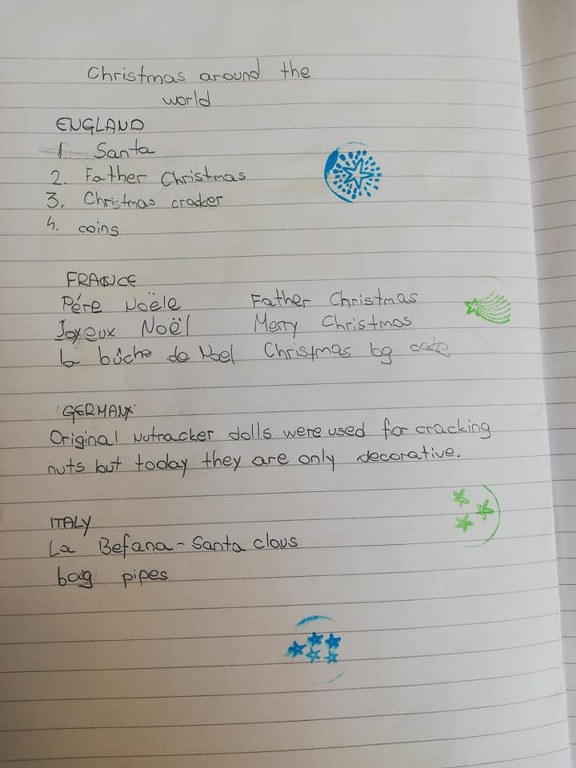 Christmas around the
world
ENGLAND
1. Santa
2. Father Christmas
3. Christmas cracker
4. coins
FRANCE
Pére Noële Father Christmas
Joyeux Noël Merry Christmas
la bûche de Noel Christmas
GERMANY
Original nutracker dolls were used for cracking
nuts but today they are only decorative.
ITALY
La Befana - Santa clous
bag pipes